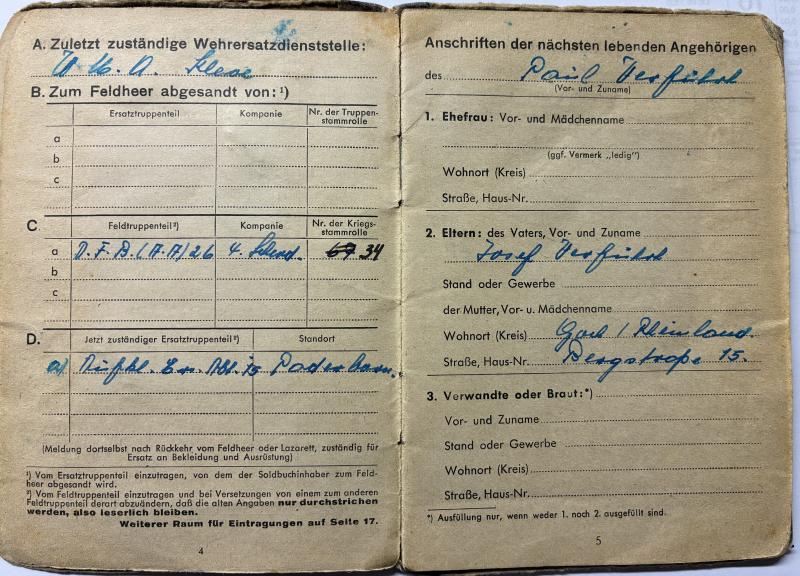 A. Zuletzt zuständige Wehrersatzdienststelle:
W. M. A. Kleve
B. Zum Feldheer abgesandt von: ¹)
Ersatztruppenteil Kompanie Nr. der Truppen-
stammrolle
a
b
c
C Feldtruppenteil²) Kompanie Nr. der Kriegs-
stammrolle
a D. F. B. (A.A) 26 4. 67 34
b
c
D. Jetzt zuständiger Ersatztruppenteil²) Standort
a) Aufkl. Ers. Abt. 15 Paderborn.
(Meldung dortselbst nach Rückkehr vom Feldheer oder Lazarett, zuständig für
Ersatz an Bekleidung und Ausrüstung)
¹) Vom Ersatztruppenteil einzutragen, von dem der Soldbuchinhaber zum Feld-
heer abgesandt wird.
²) Vom Feldtruppenteil einzutragen und bei Versetzungen von einem zum anderen
Feldtruppenteil derart abzuändern, daß die alten Angaben nur durchstrichen
werden, also leserlich bleiben.
Weiterer Raum für Eintragungen auf Seite 17.
4
Anschriften der nächsten lebenden Angehörigen
des Paul
(Vor- und Zuname)
1. Ehefrau: Vor- und Mädchenname
(ggf. Vermerk „ledig")
Wohnort (Kreis)
Straße, Haus-Nr.
2. Eltern: des Vaters, Vor- und Zuname
Josef
Stand oder Gewerbe
der Mutter, Vor- u. Mädchenname
Wohnort (Kreis) Goch / Rheinland.
Straße, Haus-Nr. Bergstraße 15.
3. Verwandte oder Braut:*)
Vor- und Zuname
Stand oder Gewerbe
Wohnort (Kreis)
Straße, Haus-Nr.
*) Ausfüllung nur, wenn weder 1. noch 2. ausgefüllt sind.
5